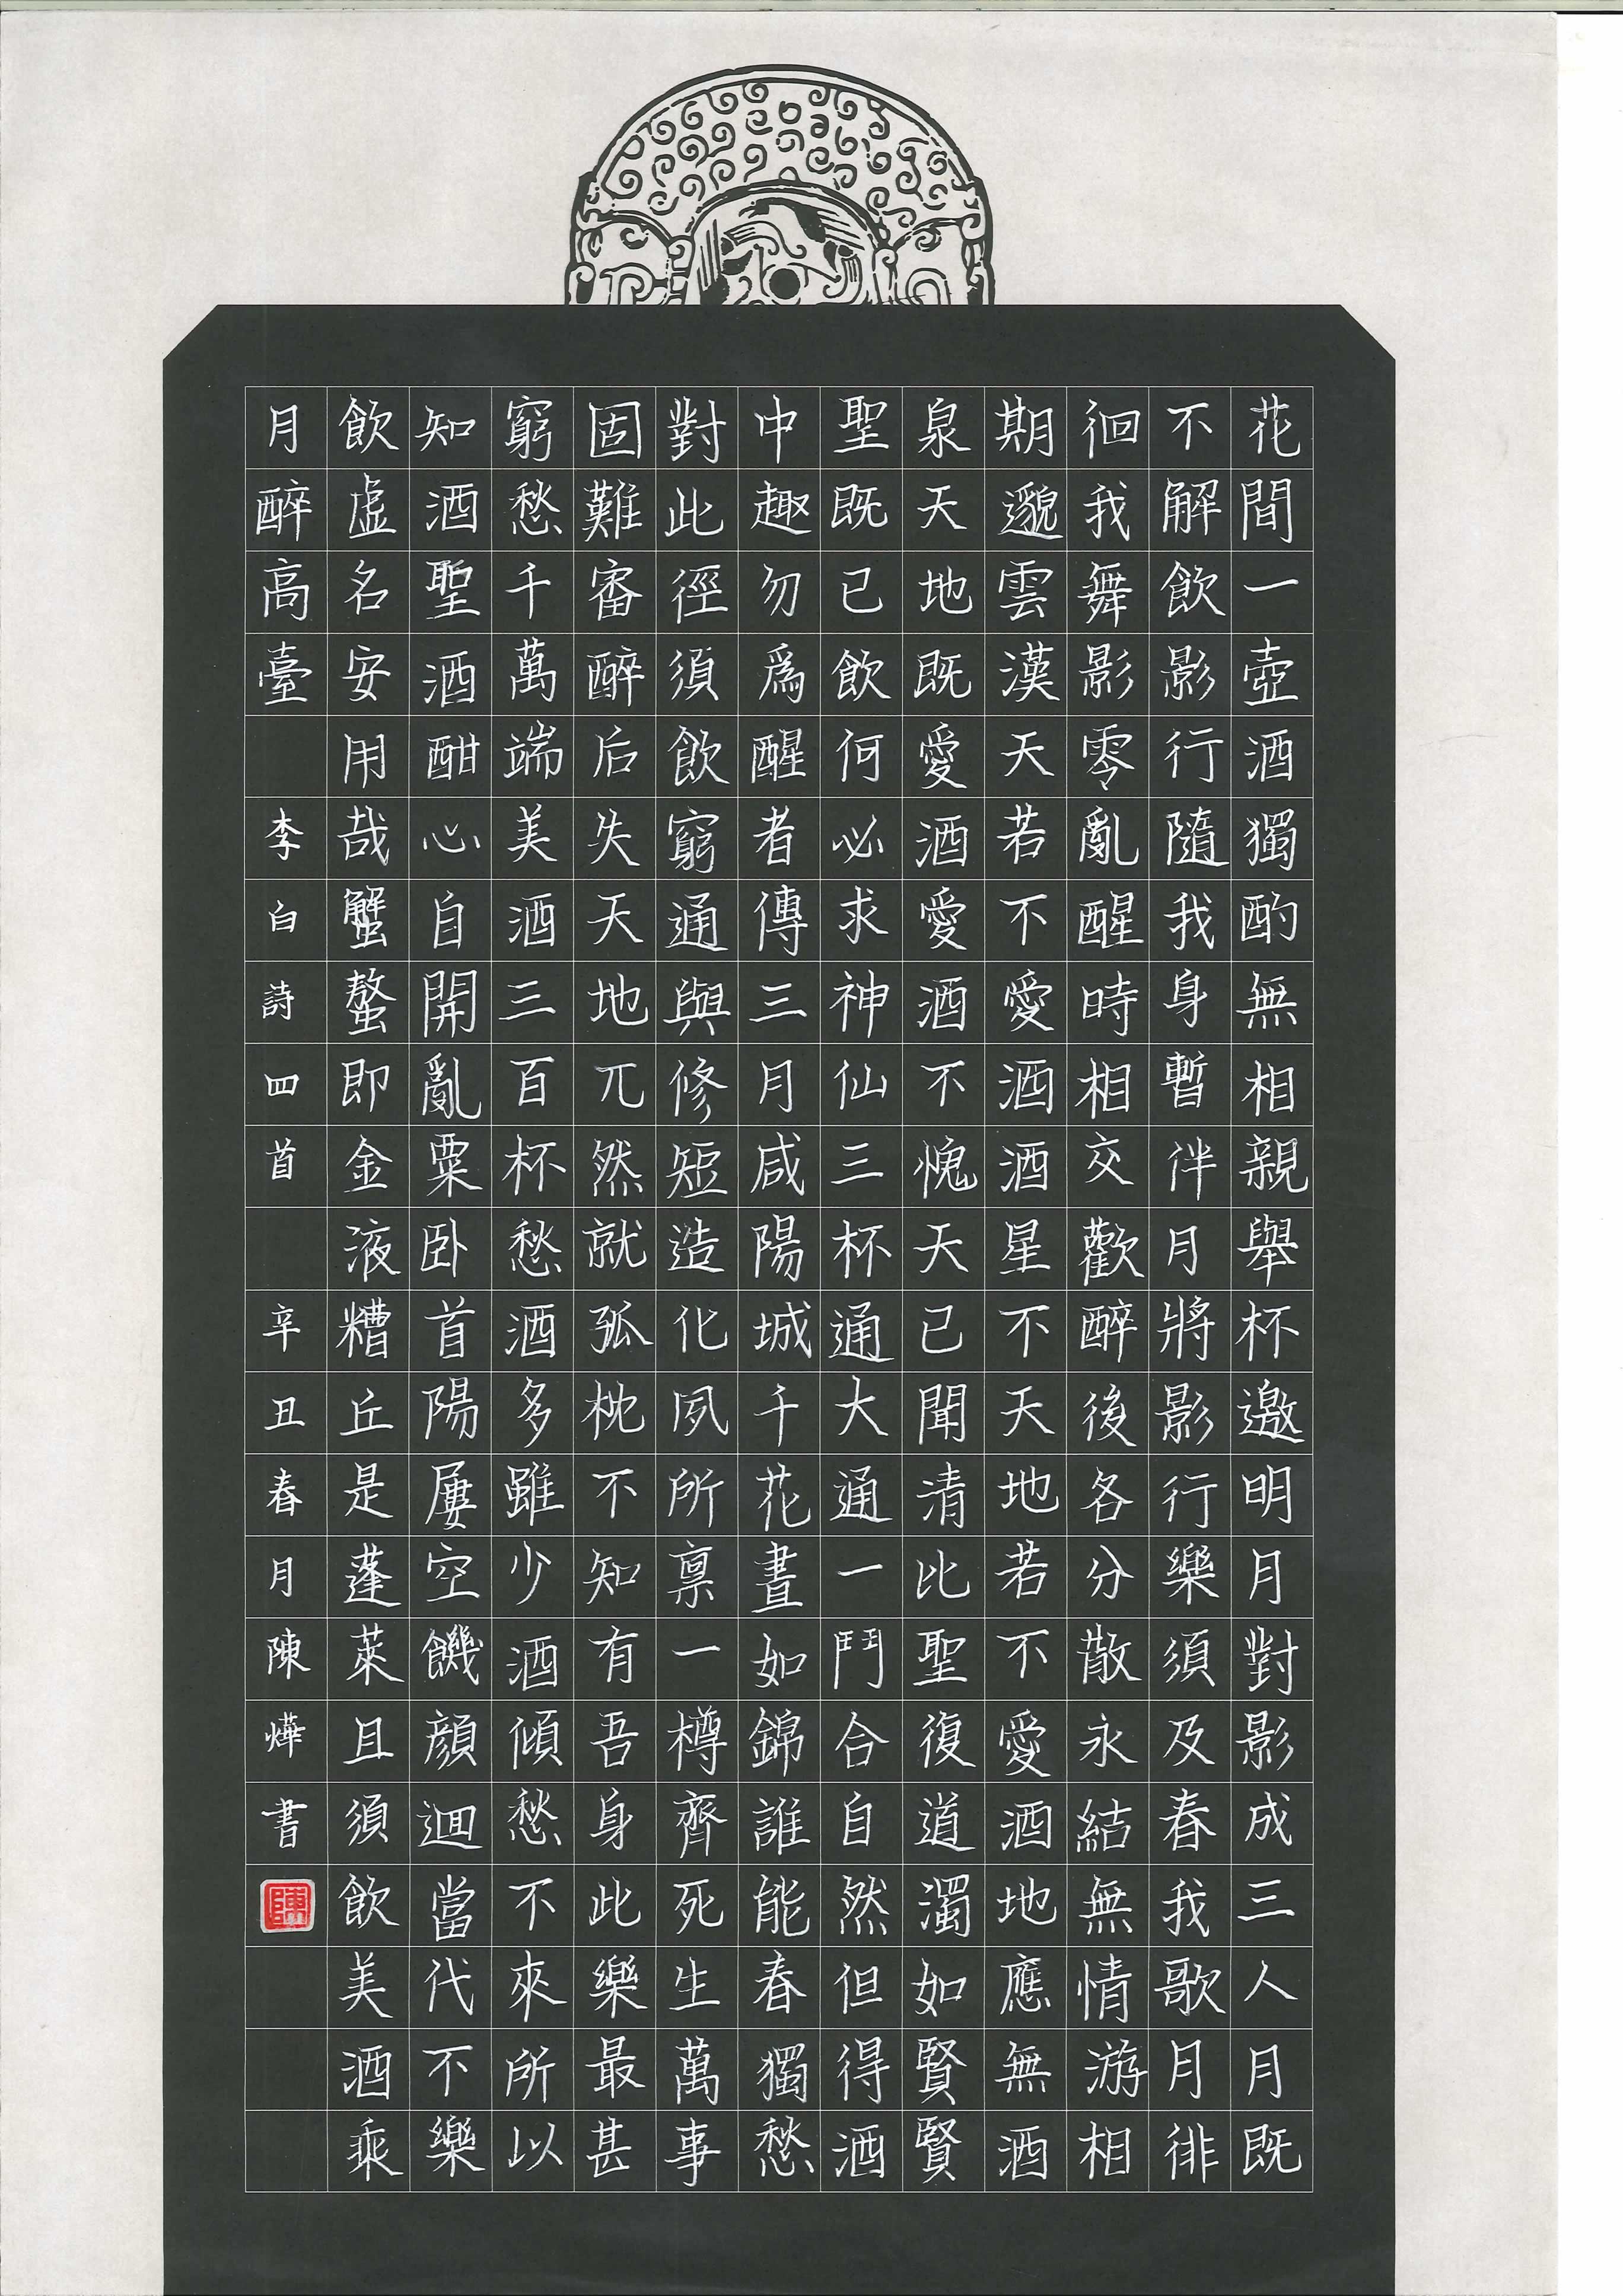 花間一壺酒獨酌無相親舉杯邀明月對影成三人月既
不解飲影行隨我身暫伴月將影行樂須及春我歌月徘
徊我舞影零亂醒時相交歡醉後各分散永結無情游相
期邈雲漢天若不愛酒酒星不天地若不愛酒地應無酒
泉天地既愛酒愛酒不愧天已聞清比聖復道濁如賢賢
聖既已飲何必求神仙三杯通大通一鬥合自然但得酒
中趣勿爲醒者傳三月咸陽城千花晝如錦誰能春獨愁
對此徑須飲窮通與修短造化夙所禀一樽齊死生萬事
固難審醉后失天地兀然就孤枕不知有吾身此樂最甚
窮愁千萬端美酒三百杯愁酒多雖少酒傾愁不來所以
知酒聖酒酣心自開亂粟卧首陽屢空饑顔迴當代不樂
飲虛名安用哉蟹螯即金液糟丘是蓬萊且須飲美酒乘
月醉高臺 李白詩四首 辛丑春月陳燁書
陳